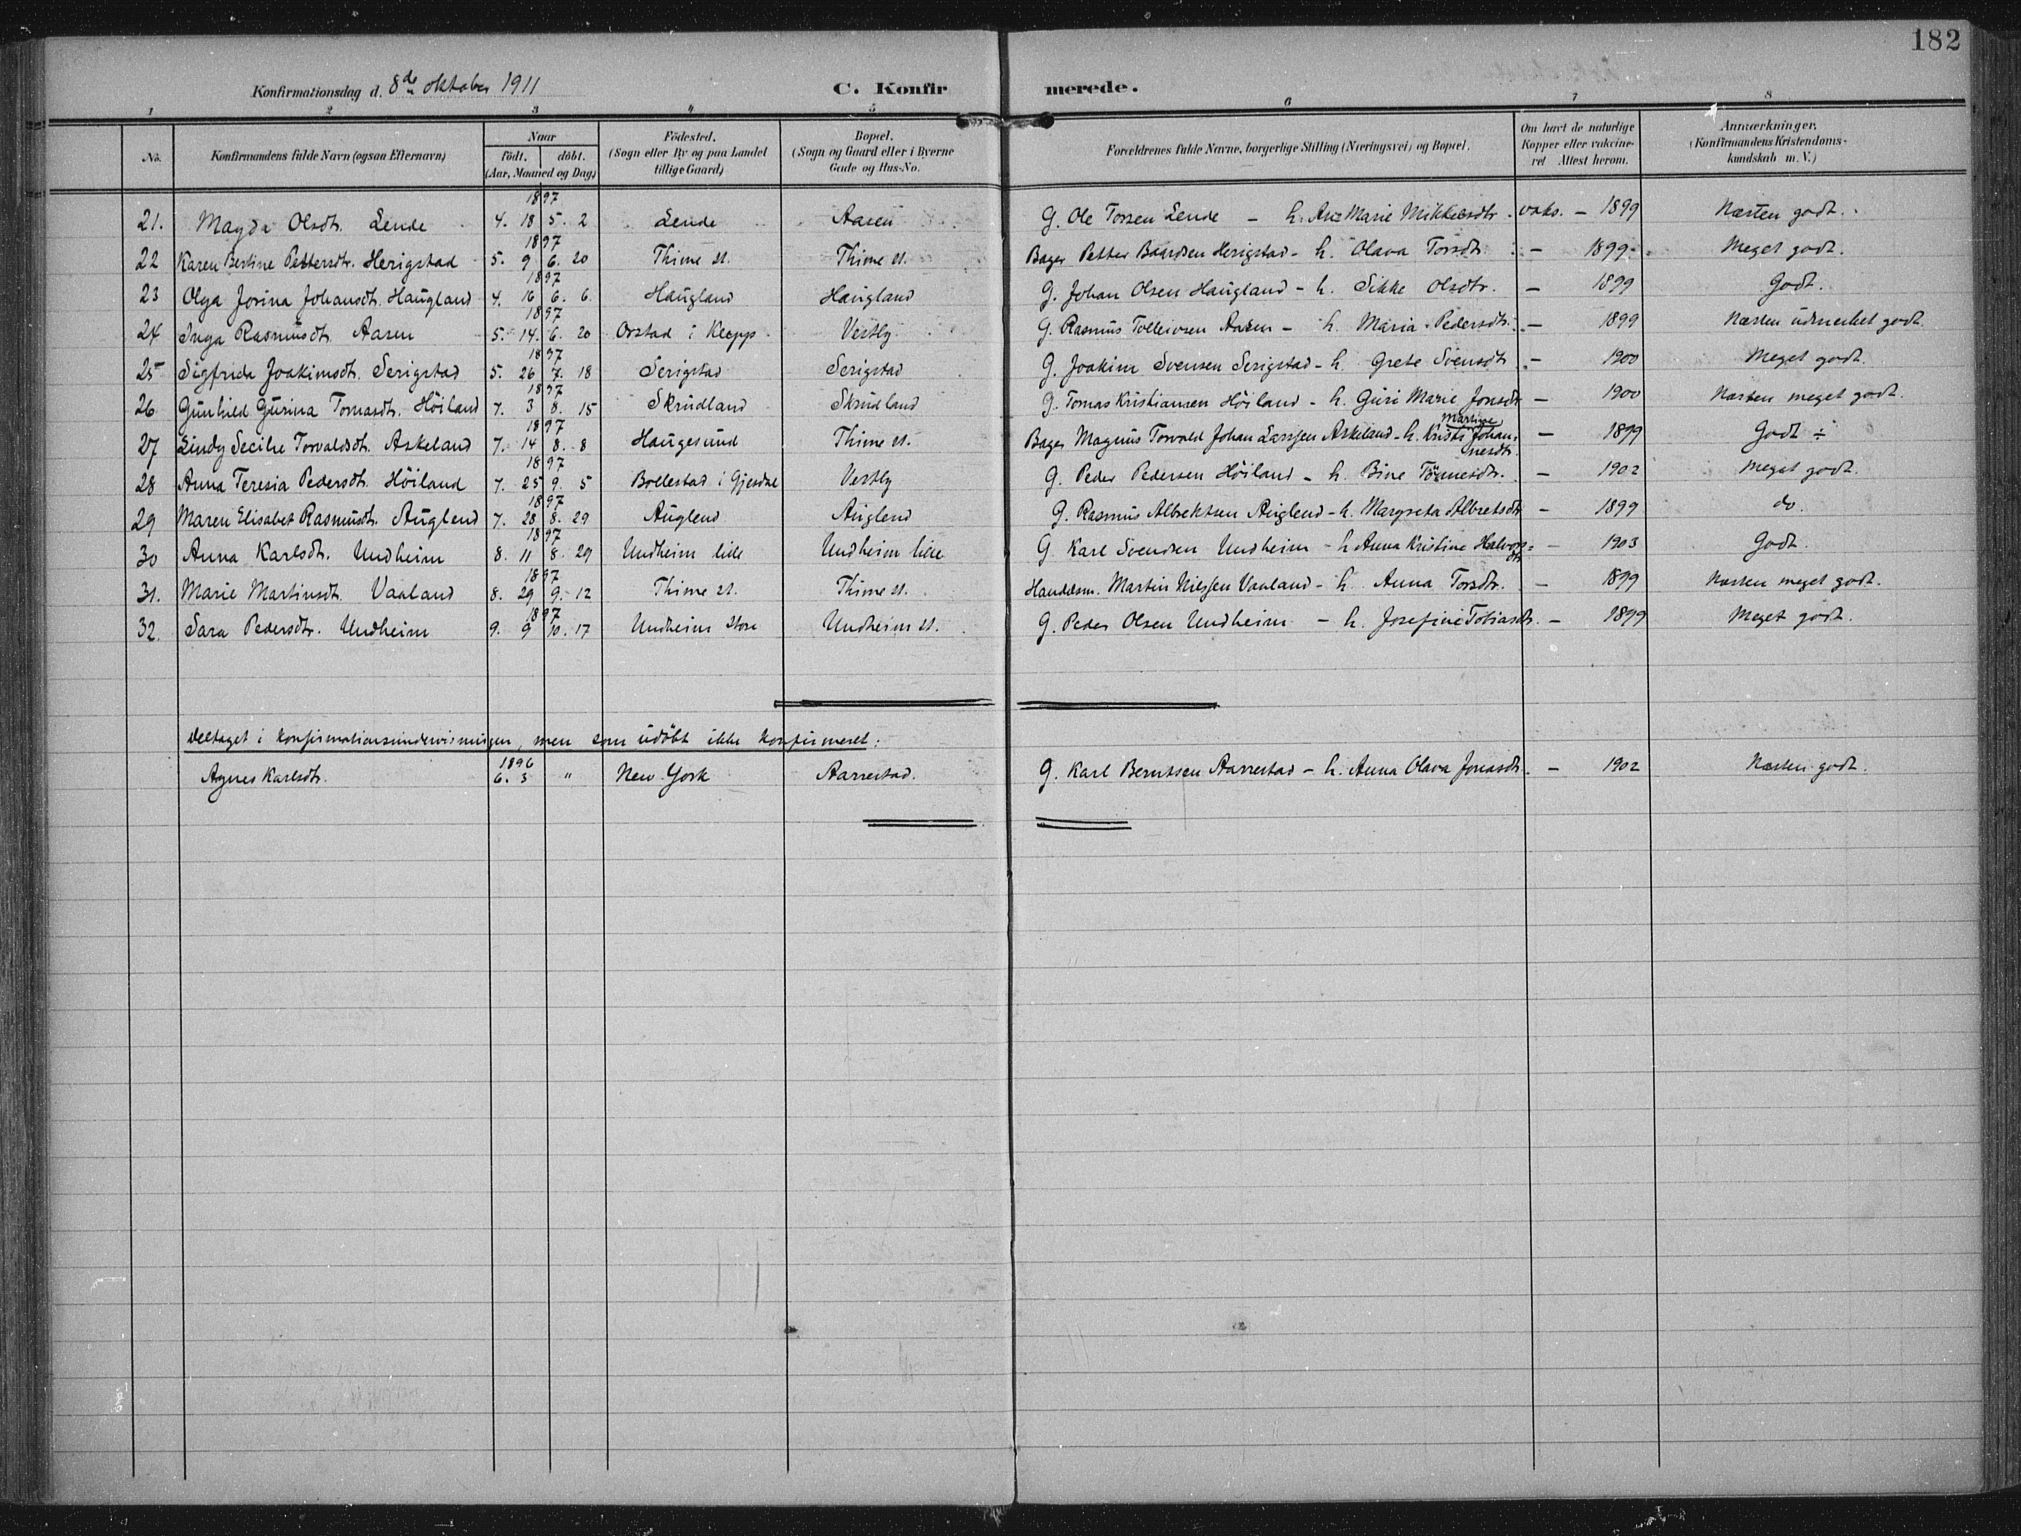 182
Konfirmationsdag d. 8de oktober 1911 C. Konfir merede.
1 2 3 4 5 6 7 8
No. Konfirmandens fulde Navn (ogsaa Efternavn) Naar födt. döbt. (Aar, Maaned og Dag) Födested. (Sogn eller By og paa Landet tillige Gaard) Bopæl. (Sogn og Gaard eller i Byerne Gade og Hus-No. Forældrenes fulde Navne, borgerlige Stilling (Næringsvei) og Bopæl. Om havt de naturlige Kopper eller vakcineret Attest herom. Anmærkninger. (Konfirmandens Kristendomskundskab m. V.)
1897
21. Magda Olsdt. Lende 4. 18 5. 2 Lende Aasen G. Ole Torsen Lende – h. Ane Marie Mikkelsdtr. vaks. – 1899 Næsten godt.
1897
22 Karen Bertine Pettersdtr. Herigstad 5. 9 6. 20 Thime st. Thime st. Bager Petter Baardsen Herigstad – h. Olava Torsdt. – 1899 Meget godt.
1897
23 Olga Jorina Johansdt. Haugland 4. 16 6. 6. Haugland Haugland G. Johan Olsen Haugland – h. Sikke Olsdtr. – 1899 Godt.
1897
24 Inga Rasmusdt. Aasen 5. 14. 6. 20 Orstad i Klepp. Vestly G. Rasmus Tolleivsen Aasen – h. Maria Pedersdt. – 1899 Næsten udmerket godt.
1897
25 Sigfrida Joakimsdt. Serigstad 5. 26 7. 18 Serigstad Serigstad G. Joakim Svensen Serigstad – h. Grete Svensdt. – 1900 Meget godt.
1897
26 Gunhild Gurina Tomasdt. Höiland 7. 3 8. 15 Skrudland Skrudland G. Tomas Kristiansen Höiland – h. Guri Marie Jonsdt – 1900 Næsten meget godt.
1897
27 Lindy Secilie Torvaldsdt. Askeland 7. 14 8. 8 Haugesund Thime st. Bager Magnus Torvald Johan Larssen Askeland – h. Kristi Martine Johannesdt. – 1899 Godt ÷
1897
28 Anna Teresia Pedersdt. Höiland 7. 25 9. 5 Bollestad i Gjesdal Vestly G. Peder Pedersen Höiland – h. Bine Tönnesdt. – 1902 Meget godt.
1897
29 Maren Elisabet Rasmusdt. Auglend 7. 28 8. 29 Auglend Auglend G. Rasmus Albrektsen Auglend – h. Margreta Albretsdt – 1899 do.
1897
30 Anna Karlsdt. Undheim 8. 11 8. 29 Undheim lille Undheim lille G. Karl Svendsen Undheim – h. Anna Kristine Halvorsdt – 1903 Godt.
1897
31. Marie Martinsdt. Vaaland 8. 29 9. 12 Thime st. Thime st. Handelsm. Martin Nilssen Vaaland – h. Anna Torsdt. – 1899 Næsten meget godt.
1897
32. Sara Pedersdt. Undheim 9. 9 10. 17 Undheim store Undheim st. G. Peder Olsen Undheim – h. Josefine Tobiasdt. – 1899 Meget godt.
Deltaget i konfirmationsundervisningen, men som udöbt ikke konfirmeret:
1896
Agnes Karlsdt. 6. 3 " New York Aarrestad. G. Karl Berntsen Aarrestad – h. Anna Olava Jonasdt. – 1902 Næsten godt.